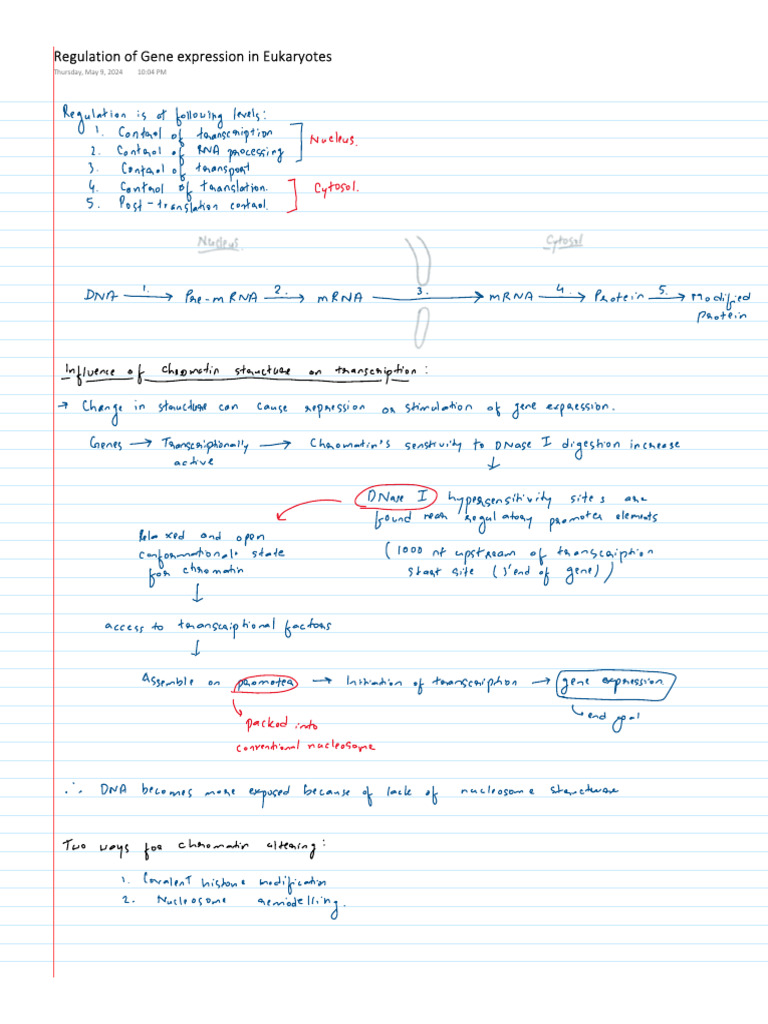 Regulation of Gene expression in Eukaryotes
Thursday, May 9, 2024 10:04 PM
Regulation is at following levels:
1. Control of transcription
2. Control of RNA processing
Nucleus.
3. Control of transport
4. Control of translation.
5. Post-translation control.
Cytosol.
Nucleus
Cytosol
DNA 1. → Pre-mRNA 2. → mRNA 3. → mRNA 4. → Protein 5. → Modified
protein
Influence of chromatin structure on transcription:
→ Change in structure can cause repression or stimulation of gene expression.
Genes → Transcriptionally → Chromatin's sensitivity to DNase I digestion increase
active
↓
DNase I hypersensitivity sites are
found near regulatory promoter elements
(1000 nt upstream of transcription
start site (3'end of gene))
Relaxed and open
conformational state
for chromatin
↓
access to transcriptional factors
↓
Assemble on promoter → Initiation of transcription → gene expression
end goal
packed into
conventional nucleosome
∴ DNA becomes more exposed because of lack of nucleosome structure
Two ways for chromatin altering:
1. Covalent histone modification
2. Nucleosome remodelling.